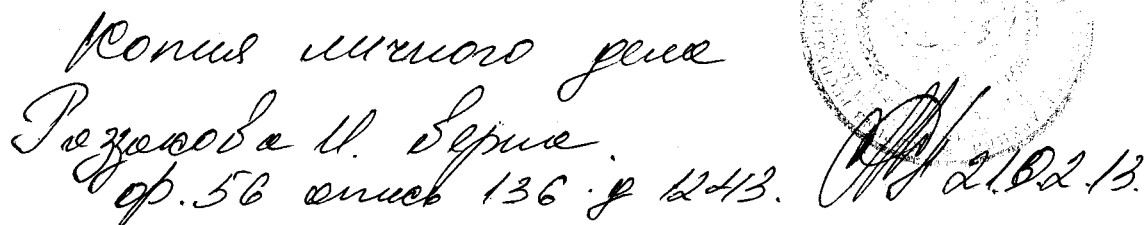 Копия личного дела
Раззакова И. верна.
ф. 56 опись 136 д 1243. 21.02.13.